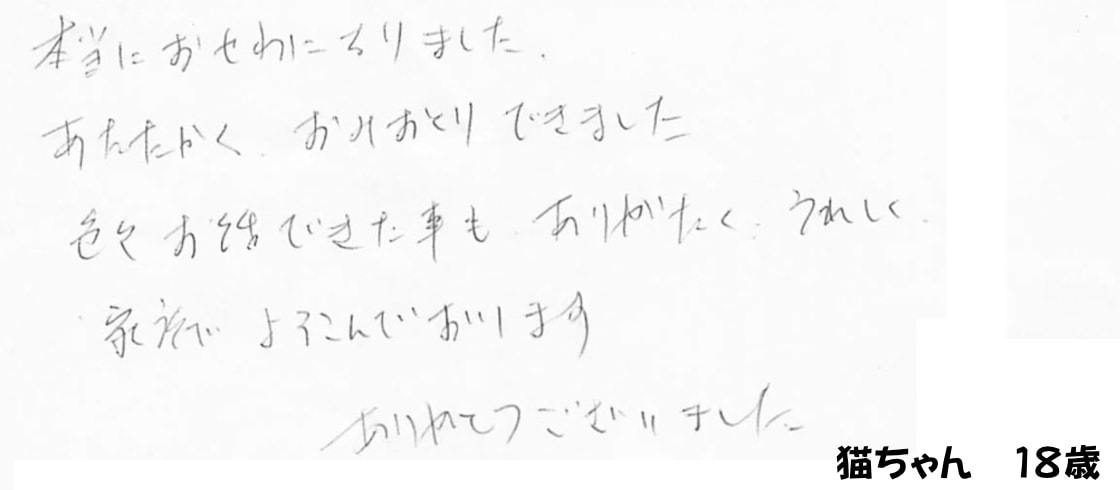 本当におせわになりました.
あたたかく、おみおとりできました
色々お話できた事も、ありがたく、うれしく、
家族でよろこんでおります
ありがとうございました
猫ちゃん 18歳